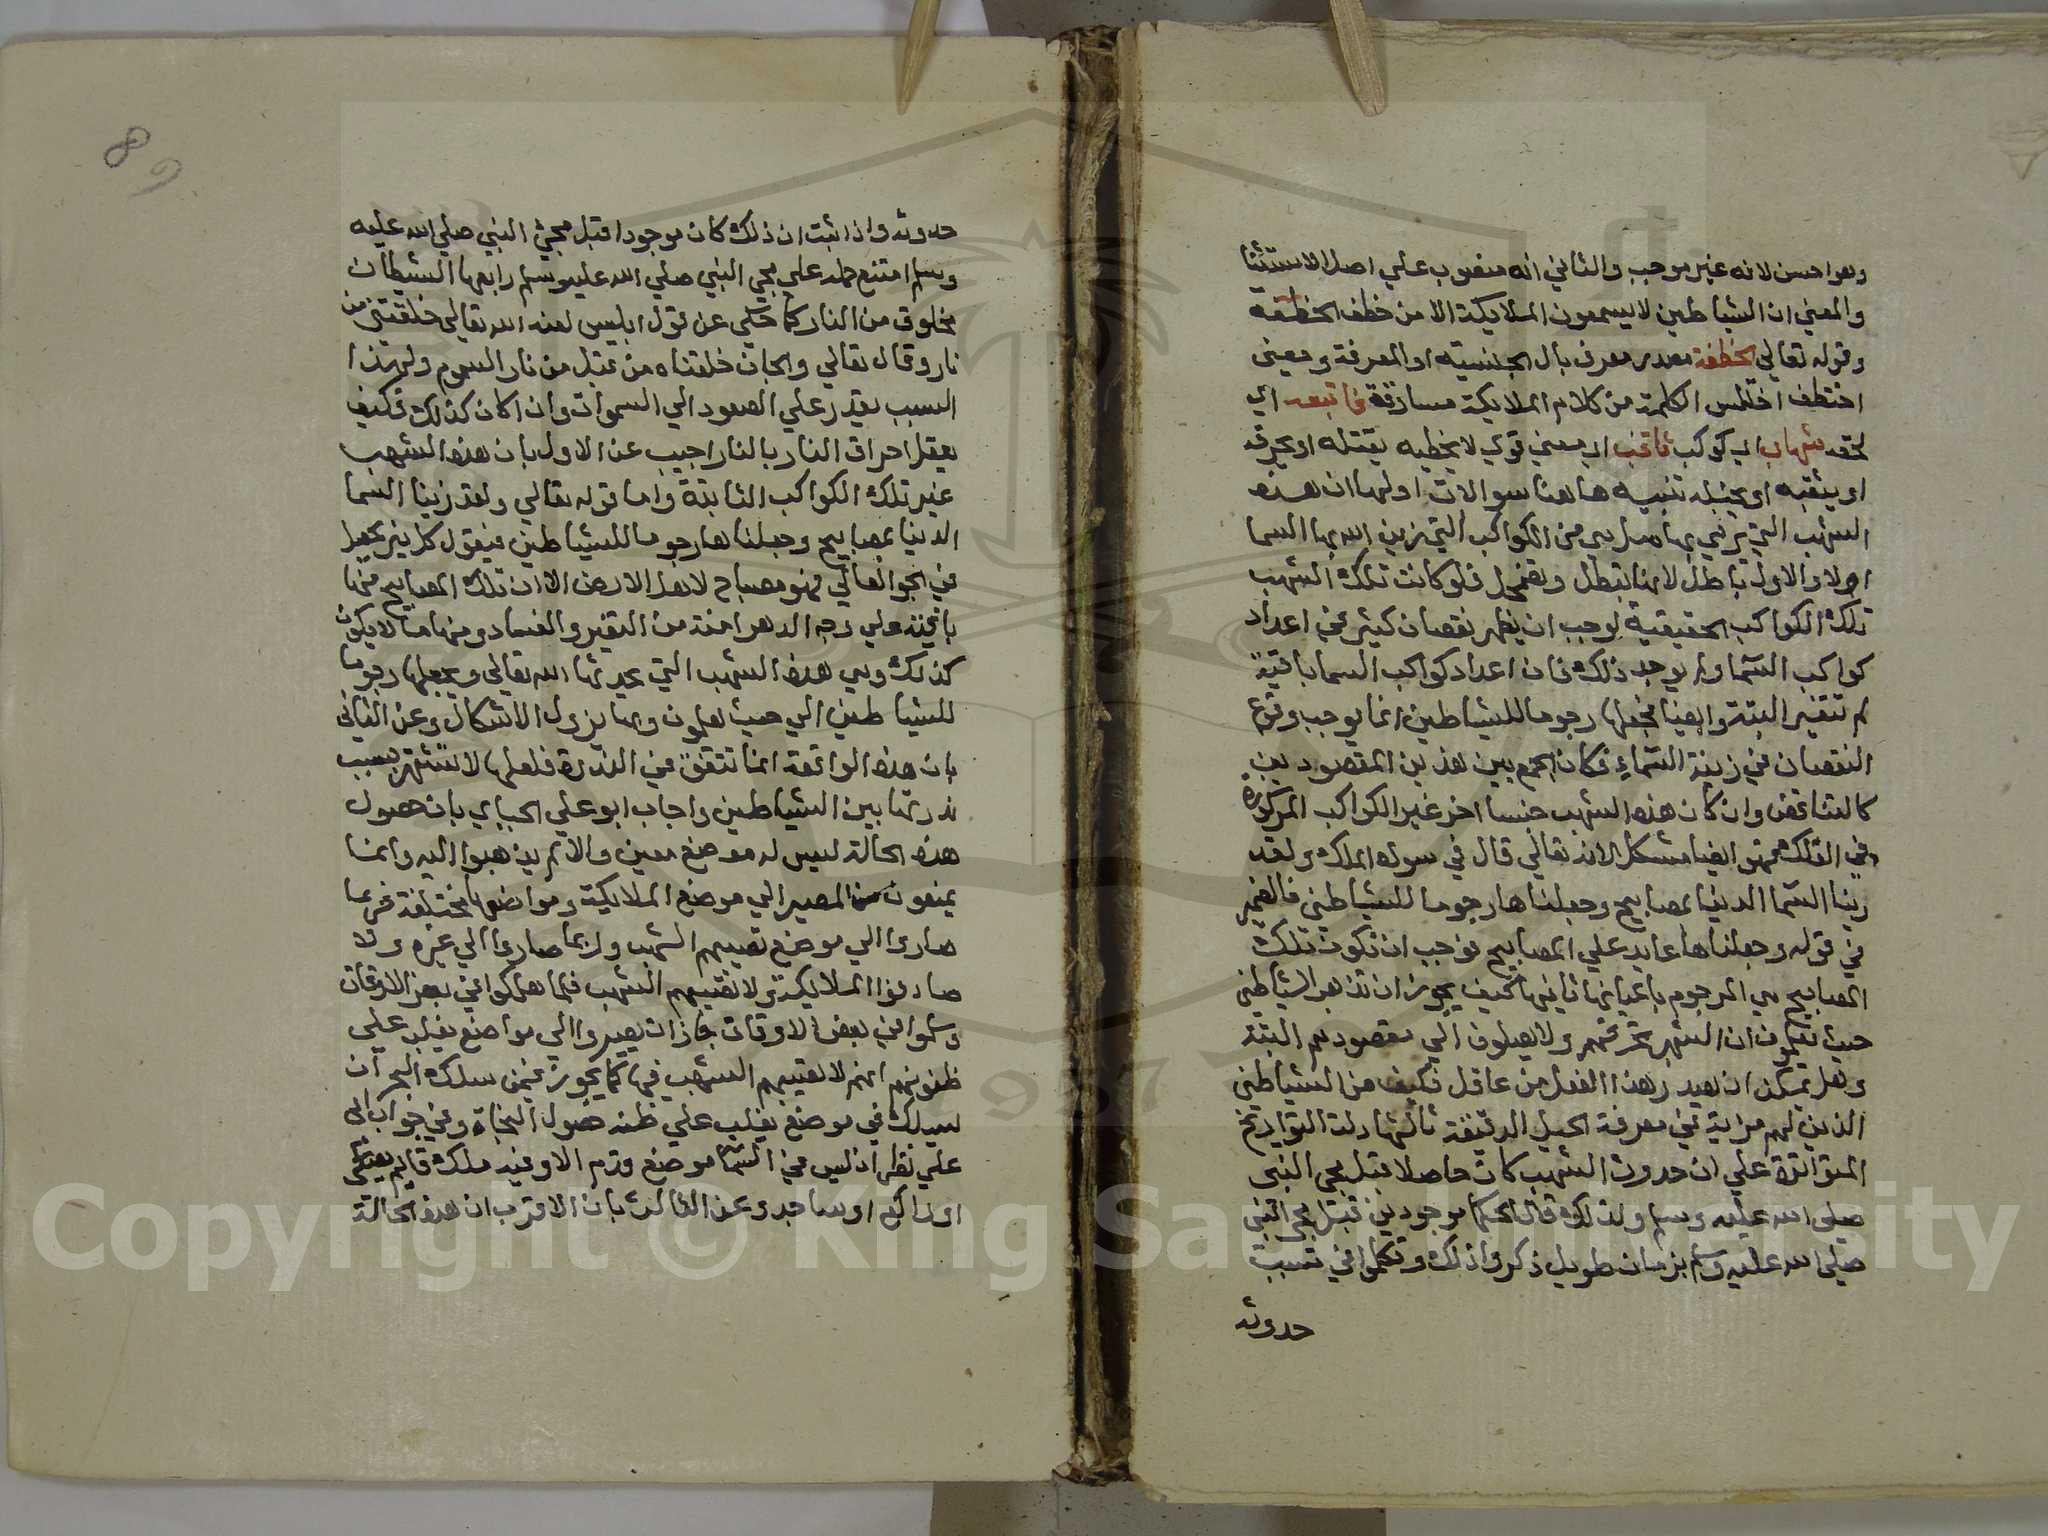 وهو احسن لانه غير موجب والثاني انه منصوب علي اصل الاستثنا
والمعني ان الشياطين لا يسمعون الملايكة الا من خطف الخطفة
وقوله تعالي الخطفة مصدر معرف بال الجنسية او المعرفة ومعني
اختطف اختلس الكلمة من كلام الملايكة مسارقة فاتبعه اي
لحقه شهاب اي كوكب ثاقب اي مضي قوي لا يخطيه يقتله او يحرقه
او يثقبه او يخبله تنبيه هاهنا سوالات اولها ان هذه
الشهب التي يرمي بها هل هي من الكواكب التي زين الله بها السما
ام لا والاول باطل لانها تبطل وتضمحل فلو كانت تلك الشهب
تلك الكواكب الحقيقية لوجب ان يظهر نقصان كثير في اعداد
كواكب السما ولم يوجد ذلك فان اعداد كواكب السما باقية
لم تتغير البتة وايضا فجعلها رجوما للشياطين انما يوجب وقوع
النقصان في زينة السماء فكان الجمع بين هذين المقصودين
كالتناقض وان كان هذه الشهب جنسا اخر غير الكواكب المركوزة
في الفلك فهو ايضا مشكل لانه تعالي قال في سورة الملك ولقد
زينا السما الدنيا بمصابيح وجعلناها رجوما للشياطين فالضمير
في قوله وجعلناها عايد علي المصابيح فوجب ان تكون تلك
المصابيح هي الرجوم باعيانها ثانيها كيف يجوز ان تذهب الشياطين
حيث يعلمون ان الشهب تحرقهم ولا يصلون الي مقصودهم البتة
وهل يمكن ان يصدر هذا الفعل من عاقل فكيف من الشياطين
الذين لهم مزاية في معرفة الحيل الدقيقة ثالثها دلت التواريخ
المتواترة علي ان حدوث الشهب كان حاصلا قبل مجي النبي
صلي الله عليه وسلم ولذلك فان الحكما موجودين قبل مجي النبي
صلي الله عليه وسلم بزمان طويل ذكروا ذلك وتكلموا في سبب
حدوثه
حدوثه واذا ثبت ان ذلك كان موجودا قبل مجئ النبي صلي الله عليه
وسلم امتنع حمله علي مجي النبي صلي الله عليه وسلم رابعها الشيطان
مخلوق من النار كما حكي عن قول ابليس لعنه الله تعالي خلقتني من
نار وقال تعالي والجان خلقناه من قبل من نار السموم ولهذا
السبب يقدر علي الصعود الي السموات واذا كان كذلك فكيف
يعقل احراق النار بالنار اجيب عن الاول بان هذه الشهب
غير تلك الكواكب الثابتة واما قوله تعالي ولقد زينا السما
الدنيا بمصابيح وجعلناها رجوما للشياطين فيقول كل نير يحصل
في الجو العالي فهو مصباح لاهل الارض الا ان تلك المصابيح منها
باقية علي وجه الدهر امنة من التغير والفساد ومنها ما لا يكون
كذلك وهي هذه الشهب التي يحدثها الله تعالي ويجعلها رجوما
للشياطين الي حيث يعلمون وبها يزول الاشكال وعن الثاني
بان هذه الواقعة انما تتفق في الندرة فلعلها لا تشتهر بسبب
ندرتها بين الشياطين واجاب ابو علي الجباي بان حصول
هذه الحالة ليس له موضع معين والا لم يذهبوا اليه وانما
يمنعون من المصير الي موضع الملائكة ومواضعها مختلفة فربما
صاروا الي موضع تصيبهم الشهب وربما صاروا الي غيره ولا
صادفوا الملايكة ولا تصيبهم الشهب فلما هلكوا في بعض الاوقات
وسلموا في بعض الاوقات جاز ان يصيروا الي مواضع يغلب علي
ظنونهم انهم لا تصيبهم الشهب فيها كما يجوز فيمن سلك البحر ان
يسلك في موضع يغلب علي ظنه حصول النجاة وفي جواب ابي
علي نظر اذ ليس في السما موضع قدم الا وفيه ملك قايم يصلي
او راكع او ساجد وعن الثالث بان الاقرب ان هذه الحالة
89
Copyright © King Saud University
1957